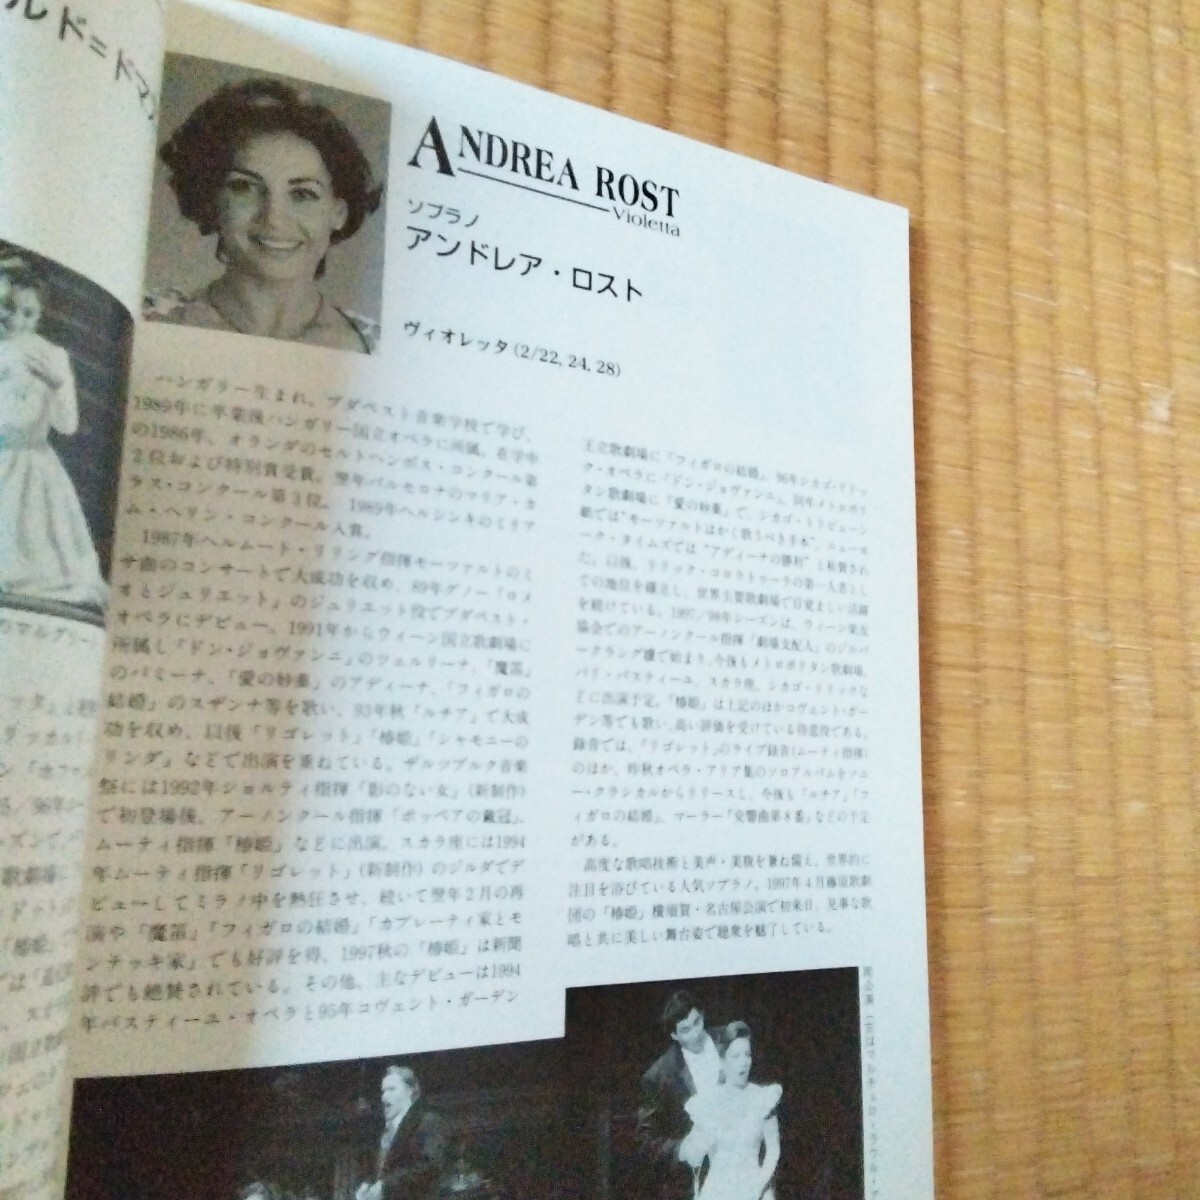 ANDREA ROST
Violetta
ソプラノ
アンドレア・ロスト
ヴィオレッタ(2/22, 24, 28)
ハンガリー生まれ。ブダペスト音楽学校で学び、
1989年に卒業後ハンガリー国立オペラに所属。在学中
の1986年、オランダのセルトヘンボス・コンクール第
2位および特別賞受賞。翌年バルセロナのマリア・カ
ラス・コンクール第3位。1989年ヘルシンキのミリア
ム・ヘリン・コンクール入賞。
1987年ヘルムート・リリング指揮モーツァルトのミ
サ曲のコンサートで大成功を収め、89年グノー「ロメ
オとジュリエット」のジュリエット役でブダペスト・
オペラにデビュー。1991年からウィーン国立歌劇場に
所属し「ドン・ジョヴァンニ」のツェルリーナ、「魔笛」
のパミーナ、「愛の妙薬」のアディーナ、「フィガロの
結婚」のスザンナ等を歌い、93年秋「ルチア」で大成
功を収め、以後「リゴレット」「椿姫」「シャモニーの
リンダ」などで出演を重ねている。ザルツブルク音楽
祭には1992年ショルティ指揮「影のない女」(新制作)
で初登場後、アーノンクール指揮「ポッペアの戴冠」、
ムーティ指揮「椿姫」などに出演。スカラ座には1994
年ムーティ指揮「リゴレット」(新制作)のジルダでデ
ビューしてミラノ中を熱狂させ、続いて翌年2月の再
演や「魔笛」「フィガロの結婚」「カプレーティ家とモ
ンテッキ家」でも好評を得、1997秋の「椿姫」は新聞
評でも絶賛されている。その他、主なデビューは1994
年バスティーユ・オペラと95年コヴェント・ガーデン
王立歌劇場に「フィガロの結婚」、96年シカゴ・リリッ
ク・オペラに「ドン・ジョヴァンニ」、同年メトロポリ
タン歌劇場に「愛の妙薬」で、シカゴ・トリビューン
紙では“モーツァルトはかく歌うべき手本”、ニューヨ
ーク・タイムズでは“アディーナの勝利”と称賛され
た。以後、リリック・コロラトゥーラの第一人者とし
ての地位を確立し、世界主要歌劇場で目覚ましい活躍
を続けている。1997/98年シーズンは、ウィーン楽友
協会でのアーノンクール指揮「劇場支配人」のジルバ
ークラング嬢で始まり、今後もメトロポリタン歌劇場、
パリ・バスティーユ、スカラ座、シカゴ・リリックな
どに出演予定。「椿姫」は上記のほかコヴェント・ガー
デン等でも歌い、高い評価を受けている得意役である。
録音では、「リゴレット」のライブ録音(ムーティ指揮)
のほか、昨秋オペラ・アリア集のソロアルバムをソニ
ー・クラシカルからリリースし、今後も「ルチア」「フ
ィガロの結婚」、マーラー「交響曲第8番」などの予定
がある。
高度な歌唱技術と美声・美貌を兼ね備え、世界的に
注目を浴びている人気ソプラノ。1997年4月藤原歌劇
団の「椿姫」横須賀・名古屋公演で初来日、見事な歌
唱と共に美しい舞台姿で聴衆を魅了している。